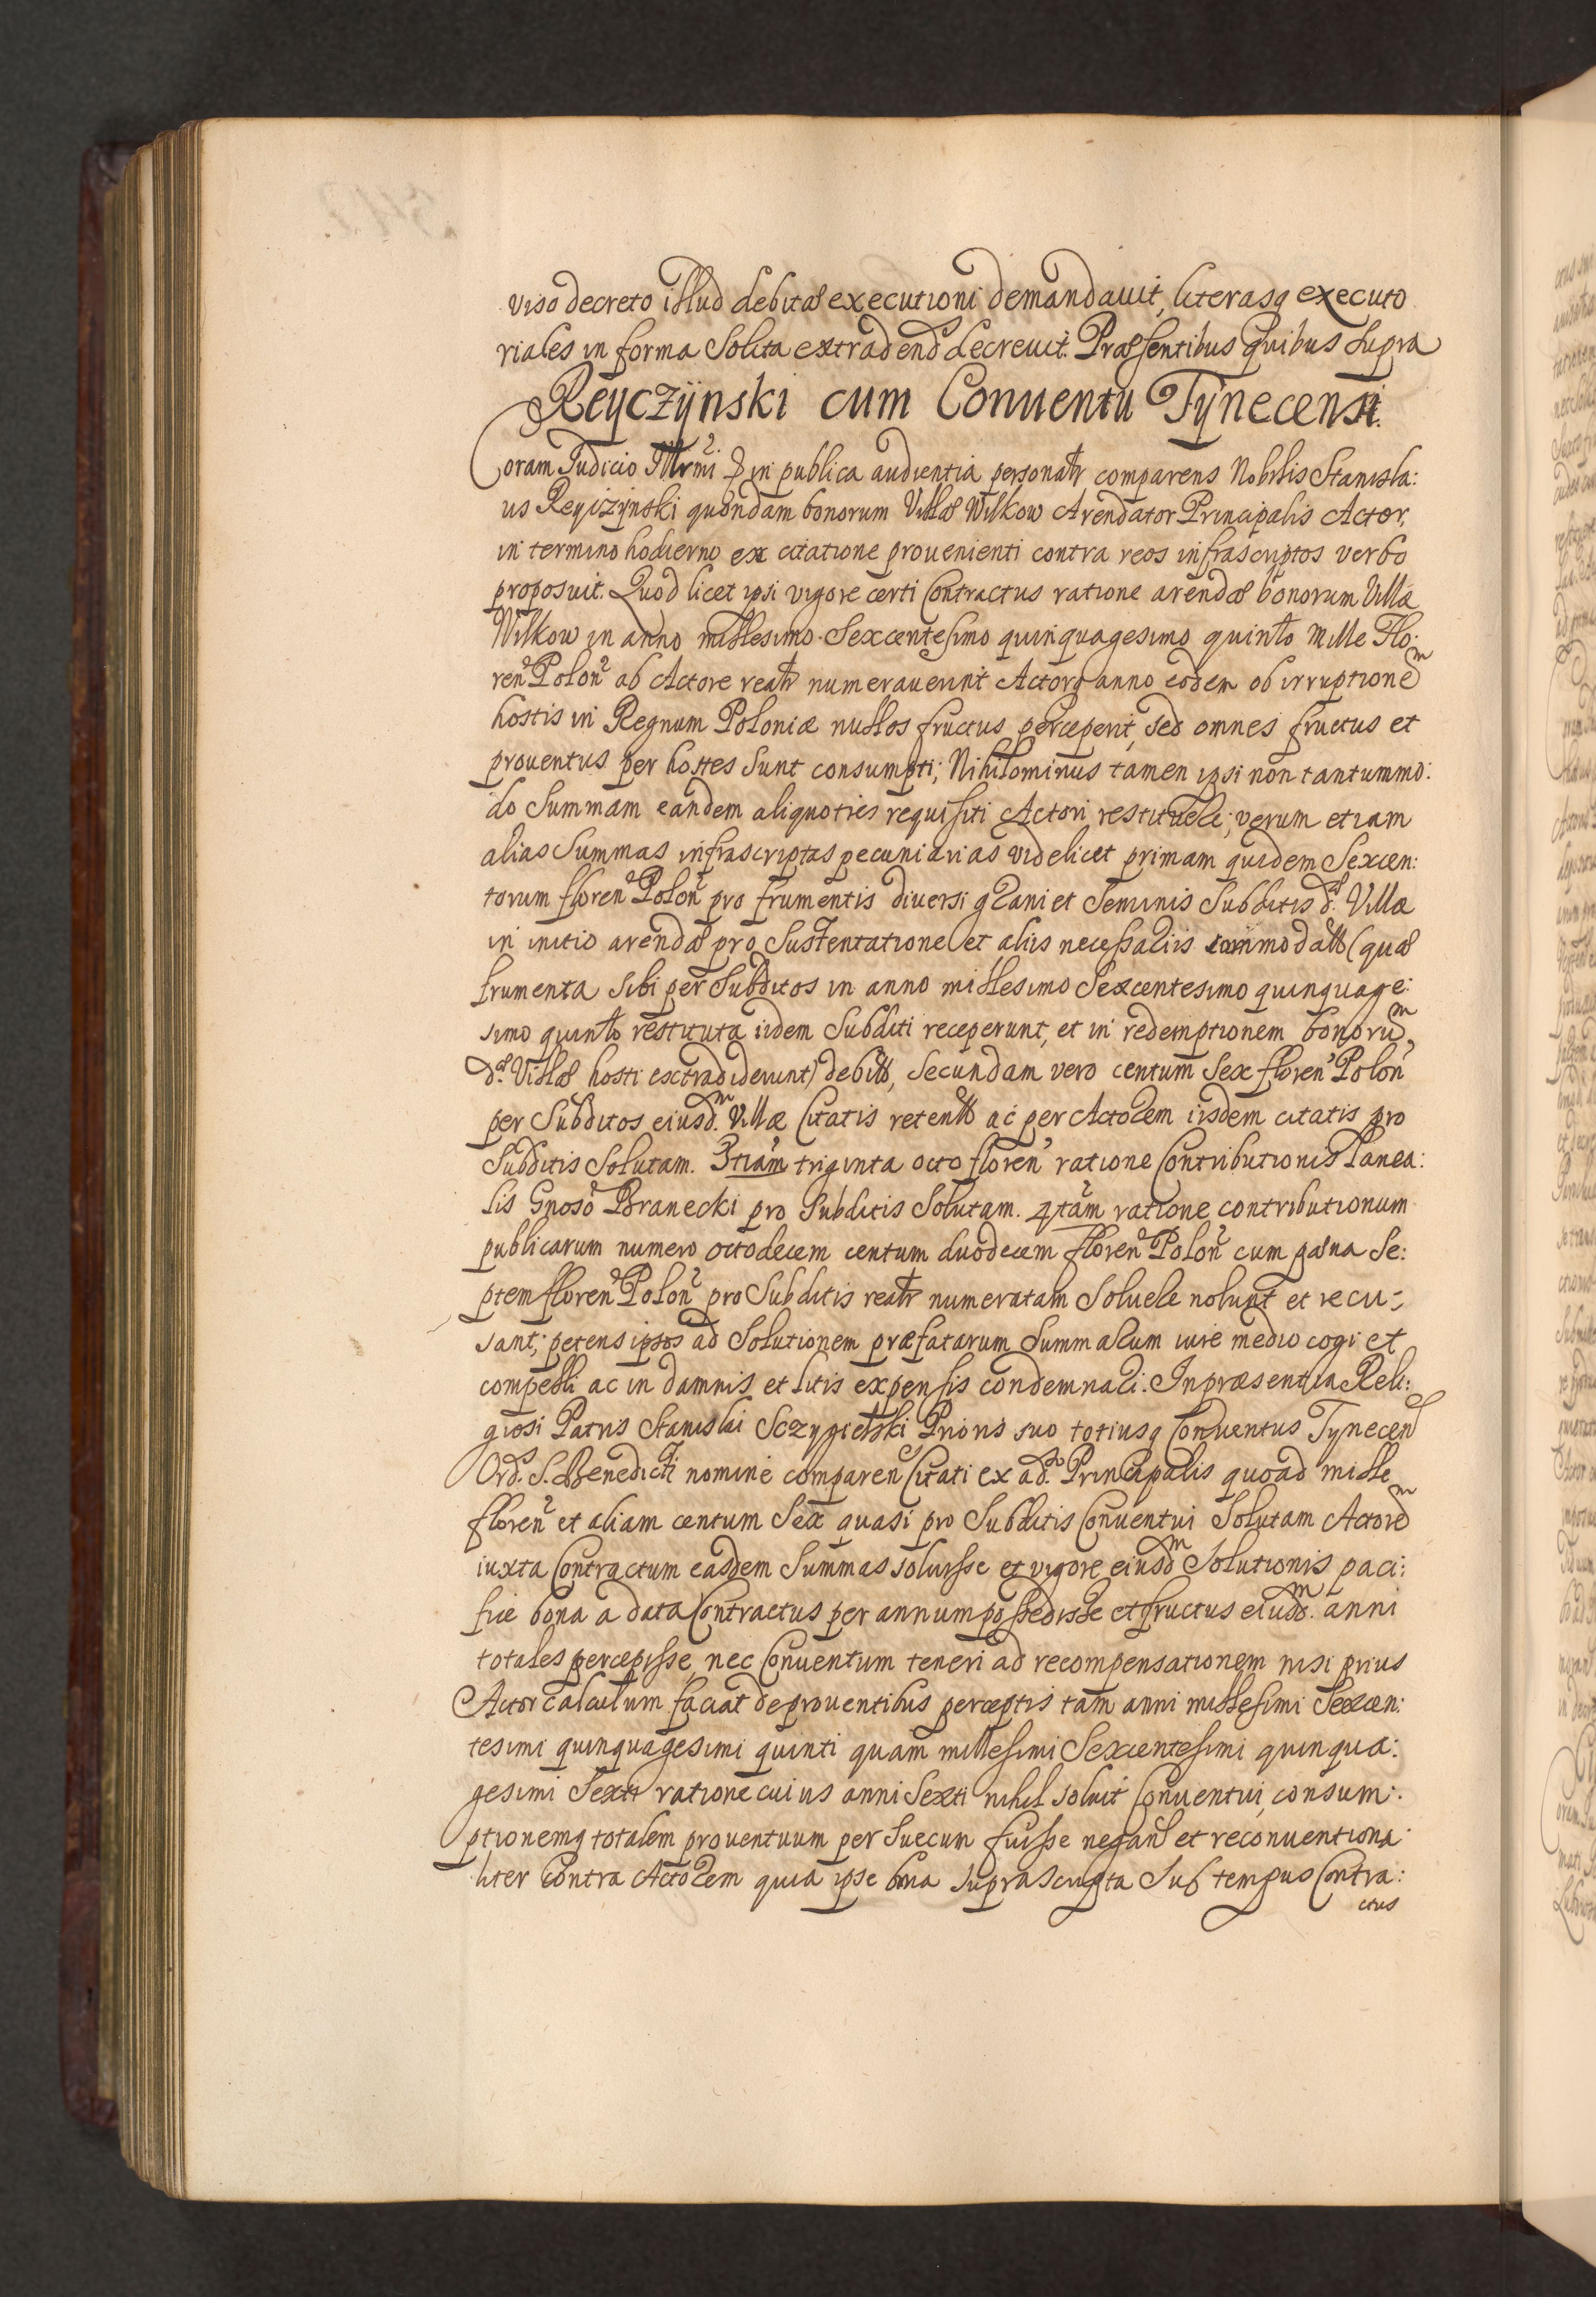 viso decreto illud debitæ executioni demandavit, literasq executo
riales in forma Solita extradend decrevit. Præsentibus quibus supra
Reyczÿnski cum Conventu Tÿnecensi.
Coram Judicio Illrmi D in publica audientia personatr comparens Nobilis Stanisla:
us Reyczÿnski quondam bonorum Villæ Wilkow Arendator Principalis Actor,
in termino hodierno ex citatione provenienti contra reos infrascriptos verbo
proposuit. Quod licet ipsi vigore certi Contractus ratione arendæ bonorum Villæ
Wilkow in anno millesimo Sexcentesimo quinquagesimo quinto mille Flo:
ren Polon ab Actore realtr numeraverint Actorq anno eodem ob irruptionem
hostis in Regnum Poloniæ nullos fructus perceperit, sed omnes fructus et
proventus per hostes Sunt consumpti; Nihilominus tamen ipsi non tantummo:
do Summam eandem aliquoties requisiti Actori restituere; verum etiam
alias Summas infrascriptas pecuniarias videlicet primam quidem Sexcen:
torum floren Polon pro frumentis diversi grani et Seminis Subditis d. Villæ
in initio arendæ pro Sustentatione et aliis necessariis commodatt (quæ
frumenta sibi per Subditos in anno millesimo Sexcentesimo quinquage:
simo quinto restituta iidem Subditi receperunt, et in redemptionem bonorum
dæ Villæ hosti extradiderunt) debitt, Secundam vero centum Sex floren Polon
per Subditos eiusdm Villæ Citatis retentt ac per Actorem iisdem citatis pro
Subditis Solutam. 3tiam triginta octo floren ratione Contributionis Lanea:
lis Gnoso Branecki pro Subditis Solutam. 4tam ratione contributionum
publicarum numero octodecem centum duodecem floren Polon cum pæna Se:
ptem floren Polon pro Subditis realtr numeratam Solvere nolunt et recu:
sant; petens ipsos ad Solutionem præfatarum Summarum iure medio cogi et
compelli ac in damnis et litis expensis condemnari. In præsentia Reli:
giosi Patris Stanislai Sczygielski Prioris suo totiusq Conventus Tynecen
Ord. S. Benedicti nomine comparen Citati ex ado. Principalis quoad mille
floren et aliam centum Sex quasi pro Subditis Conventui Solutam Actorem
iuxta Contractum easdem Summas solvisse et vigore eiusdm Solutionis paci:
fice bona a data Contractus per annum possedisse et fructus eiusdm. anni
totales percepisse, nec Conventum teneri ad recompensationem nisi prius
Actor calculum faciat de proventibus perceptis tam anni millesimi Sexcen:
tesimi quinquagesimi quinti quam millesimi Sexcentesimi quinqua:
gesimi Sexti ratione cuius anni Sexti nihil solvit Conventui, consum:
ptionemq totalem proventuum per Suecum fuisse negans et reconventiona
liter Contra Actorem quia ipse bona suprascripta Sub tempus Contra:
ctus